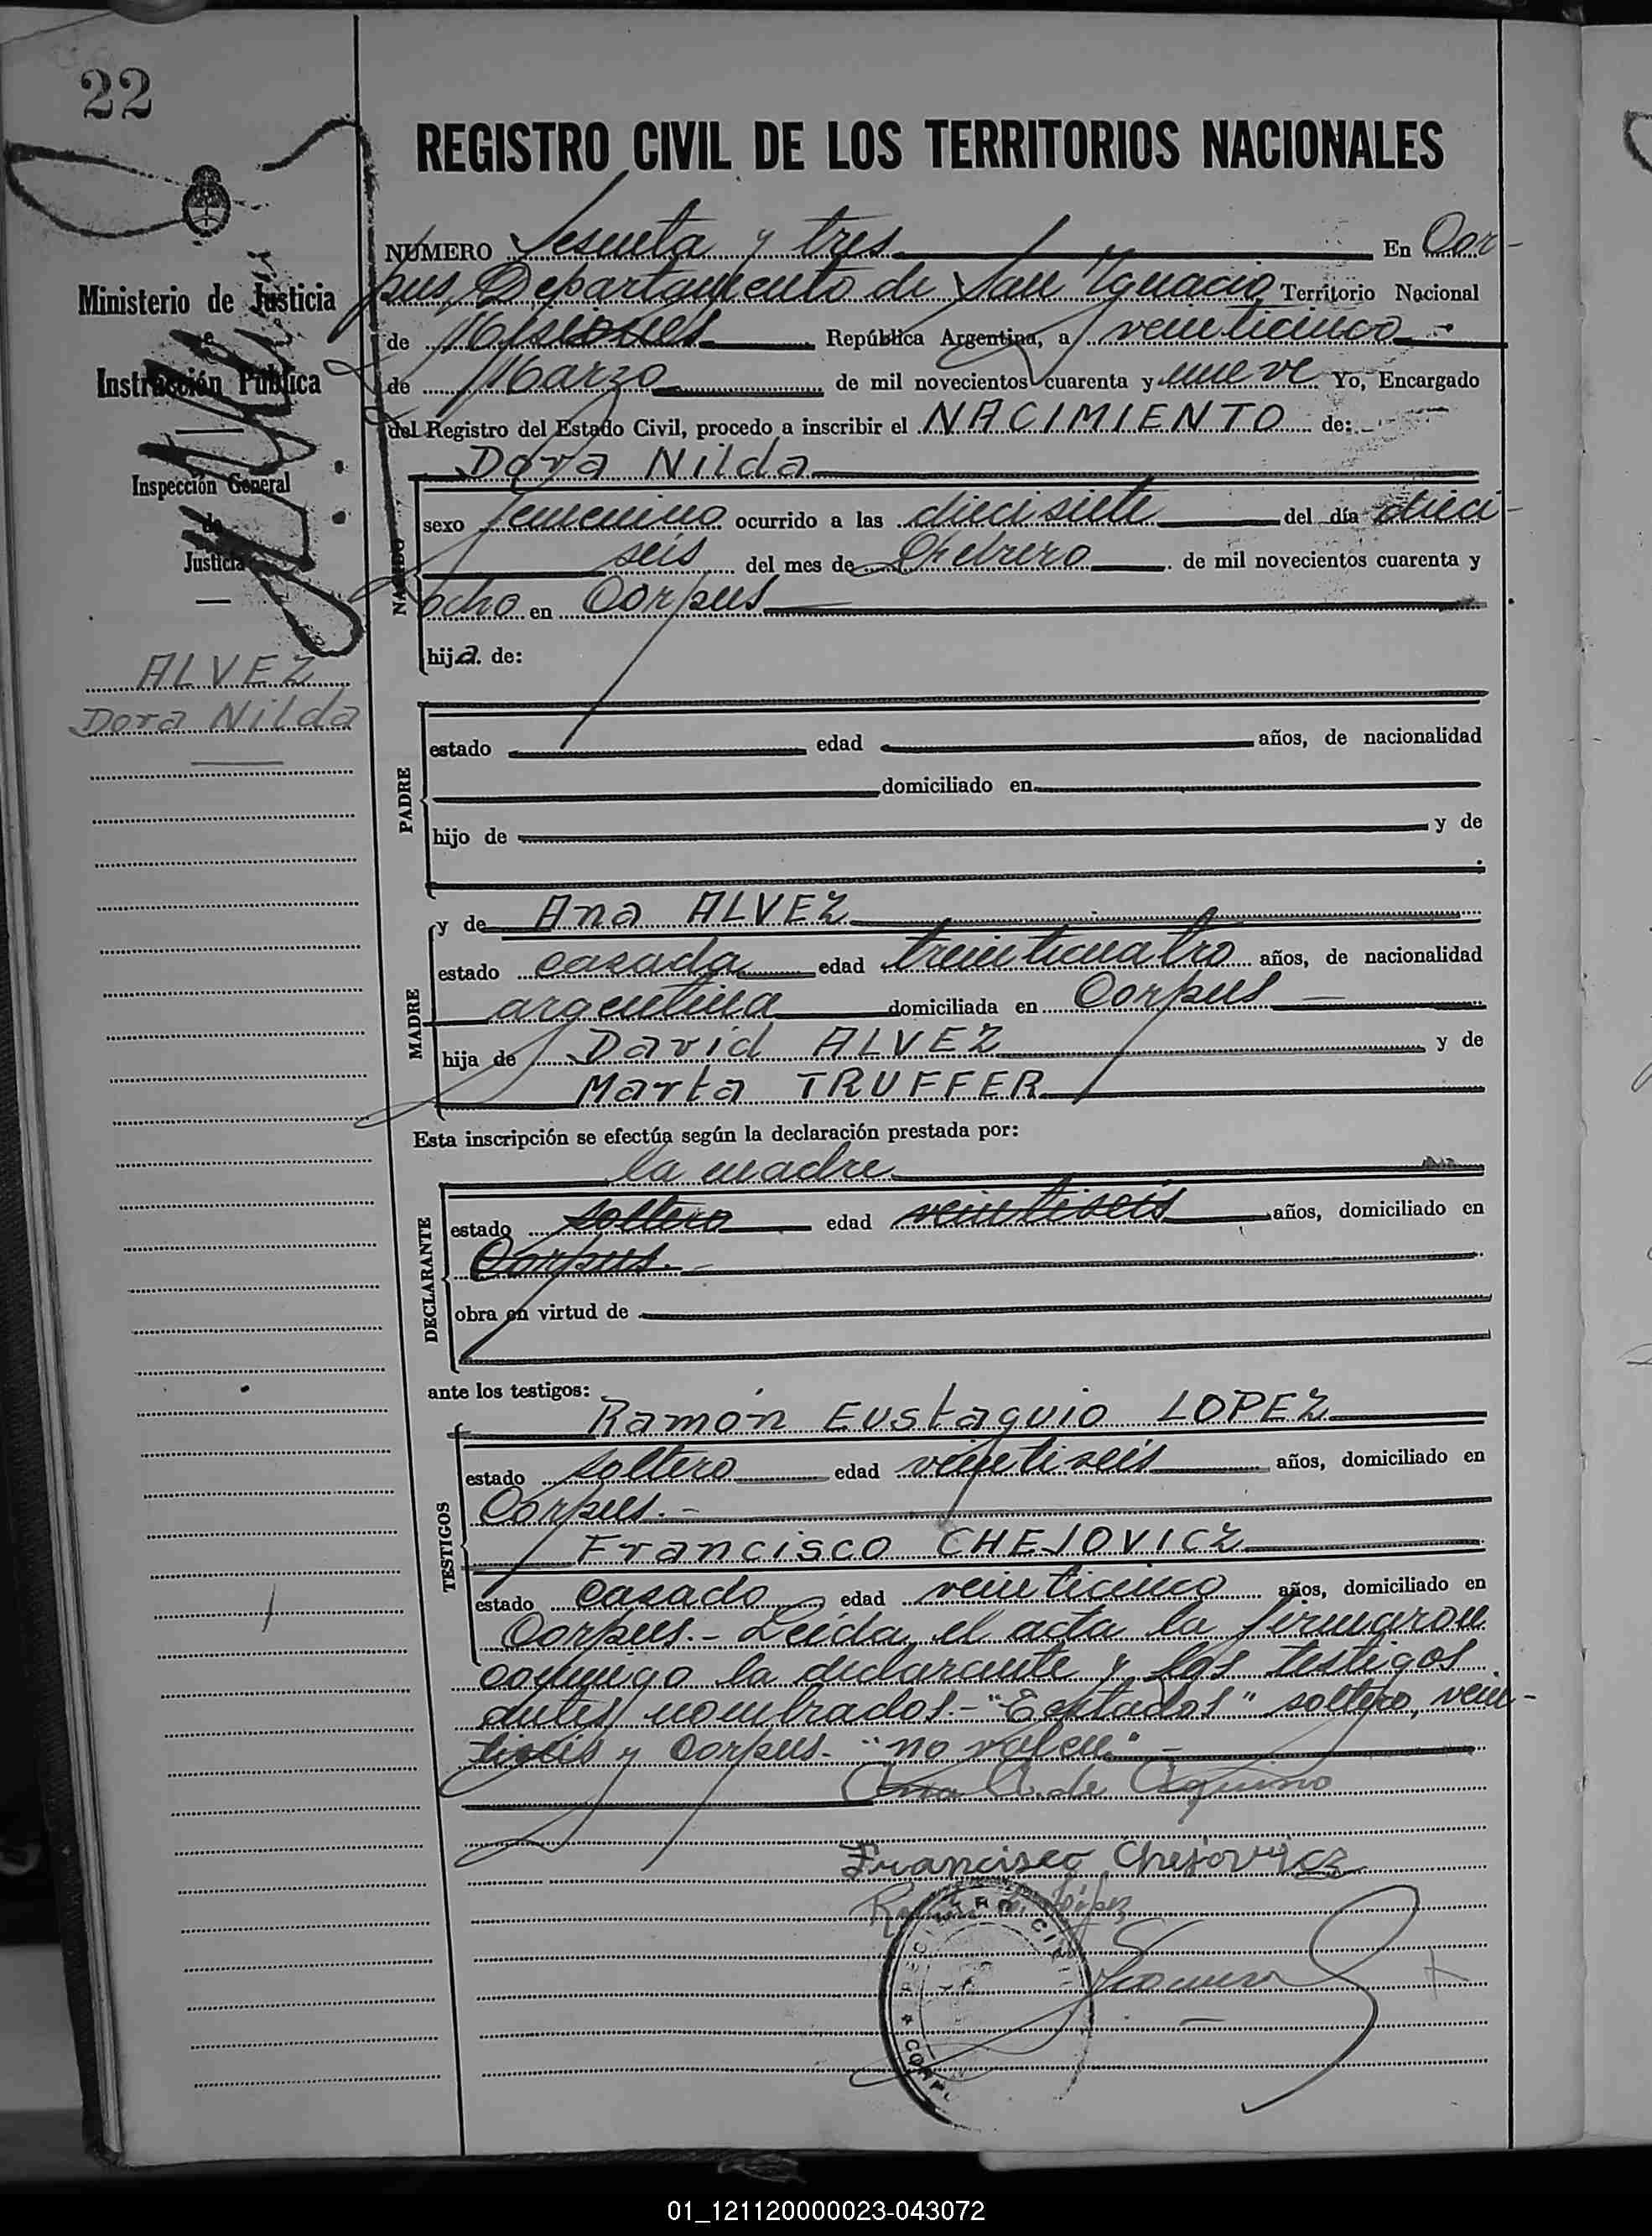 22
REGISTRO CIVIL DE LOS TERRITORIOS NACIONALES
NÚMERO Sesenta y tres En Cor-
pus Departamento de San Ygnacio Territorio Nacional
de Misiones República Argentina, a veinticinco
de Marzo de mil novecientos cuarenta y nueve Yo, Encargado
del Registro del Estado Civil, procedo a inscribir el NACIMIENTO de:
Dora Nilda
Ministerio de Justicia
e
Instrucción Pública
Inspección General
de
Justicia
ALVEZ
Dora Nilda
NACIDO
sexo femenino ocurrido a las diecisiete del día dieci-
seis del mes de Febrero de mil novecientos cuarenta y
ocho en Corpus
hija de:
PADRE
estado edad años, de nacionalidad
domiciliado en
hijo de y de
MADRE
y de Ana ALVEZ
estado casada edad treinticuatro años, de nacionalidad
argentina domiciliada en Corpus
hija de David ALVEZ y de
Marta TRUFFER
Esta inscripción se efectúa según la declaración prestada por:
la madre
DECLARANTE
estado soltero edad veintiseis años, domiciliado en
Corpus.
obra en virtud de
ante los testigos:
TESTIGOS
Ramón Eustaquio LOPEZ
estado soltero edad veintiseis años, domiciliado en
Corpus.-
Francisco CHEJOVICZ
estado casado edad veinticinco años, domiciliado en
Corpus.- Leída el acta la firmaron
conmigo la declarante y los testigos
antes nombrados.- "Estados" soltero, vein-
tiseis y Corpus.- "no valen".-
Ana A. de Aquino
Francisco Chejovicz
Ramón E. López
REGISTRO CIVIL
CORPUS
01_121120000023-043072